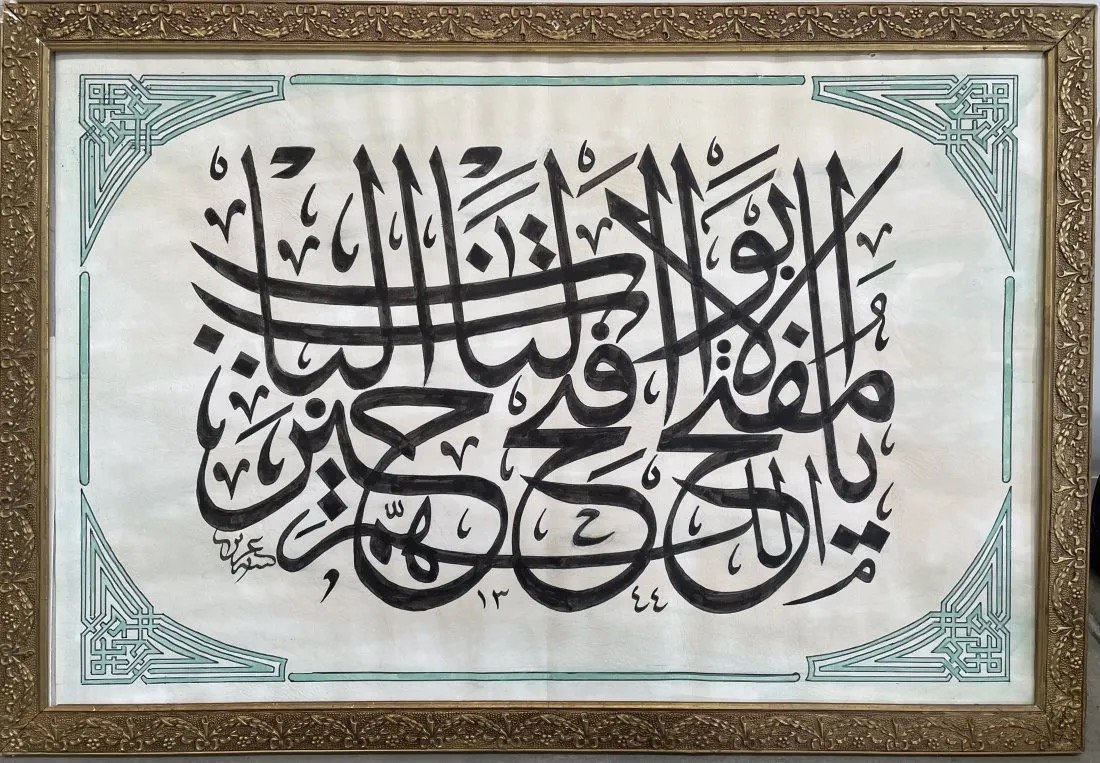 اللهم يا مفتح الابواب افتح لنا خير الباب
١٣٤٤